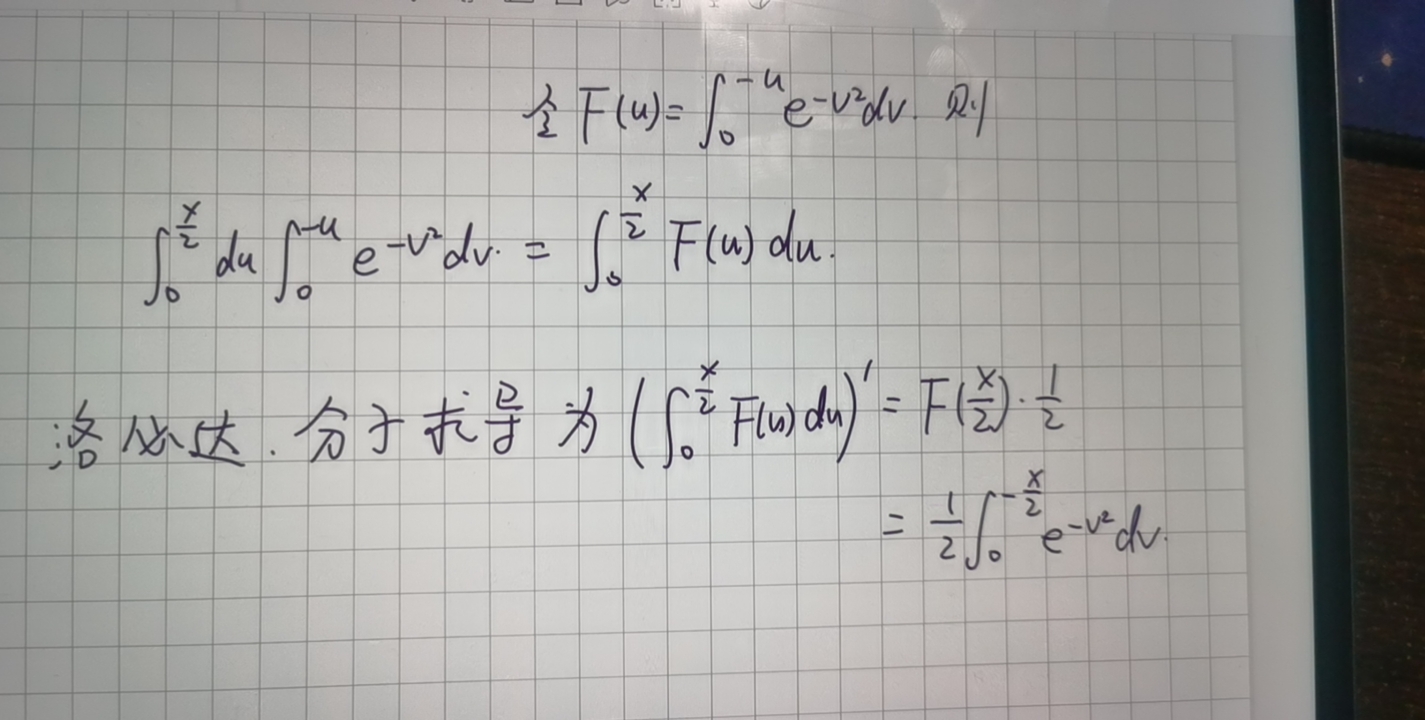 令 F(u)=∫₀^{-u} e^{-v²}dv. 则
∫₀^{x/2} du ∫₀^{-u} e^{-v²}dv. = ∫₀^{x/2} F(u) du.
洛必达. 分子求导为 (∫₀^{x/2} F(u) du)' = F(x/2)·1/2
= 1/2 ∫₀^{-x/2} e^{-v²}dv.